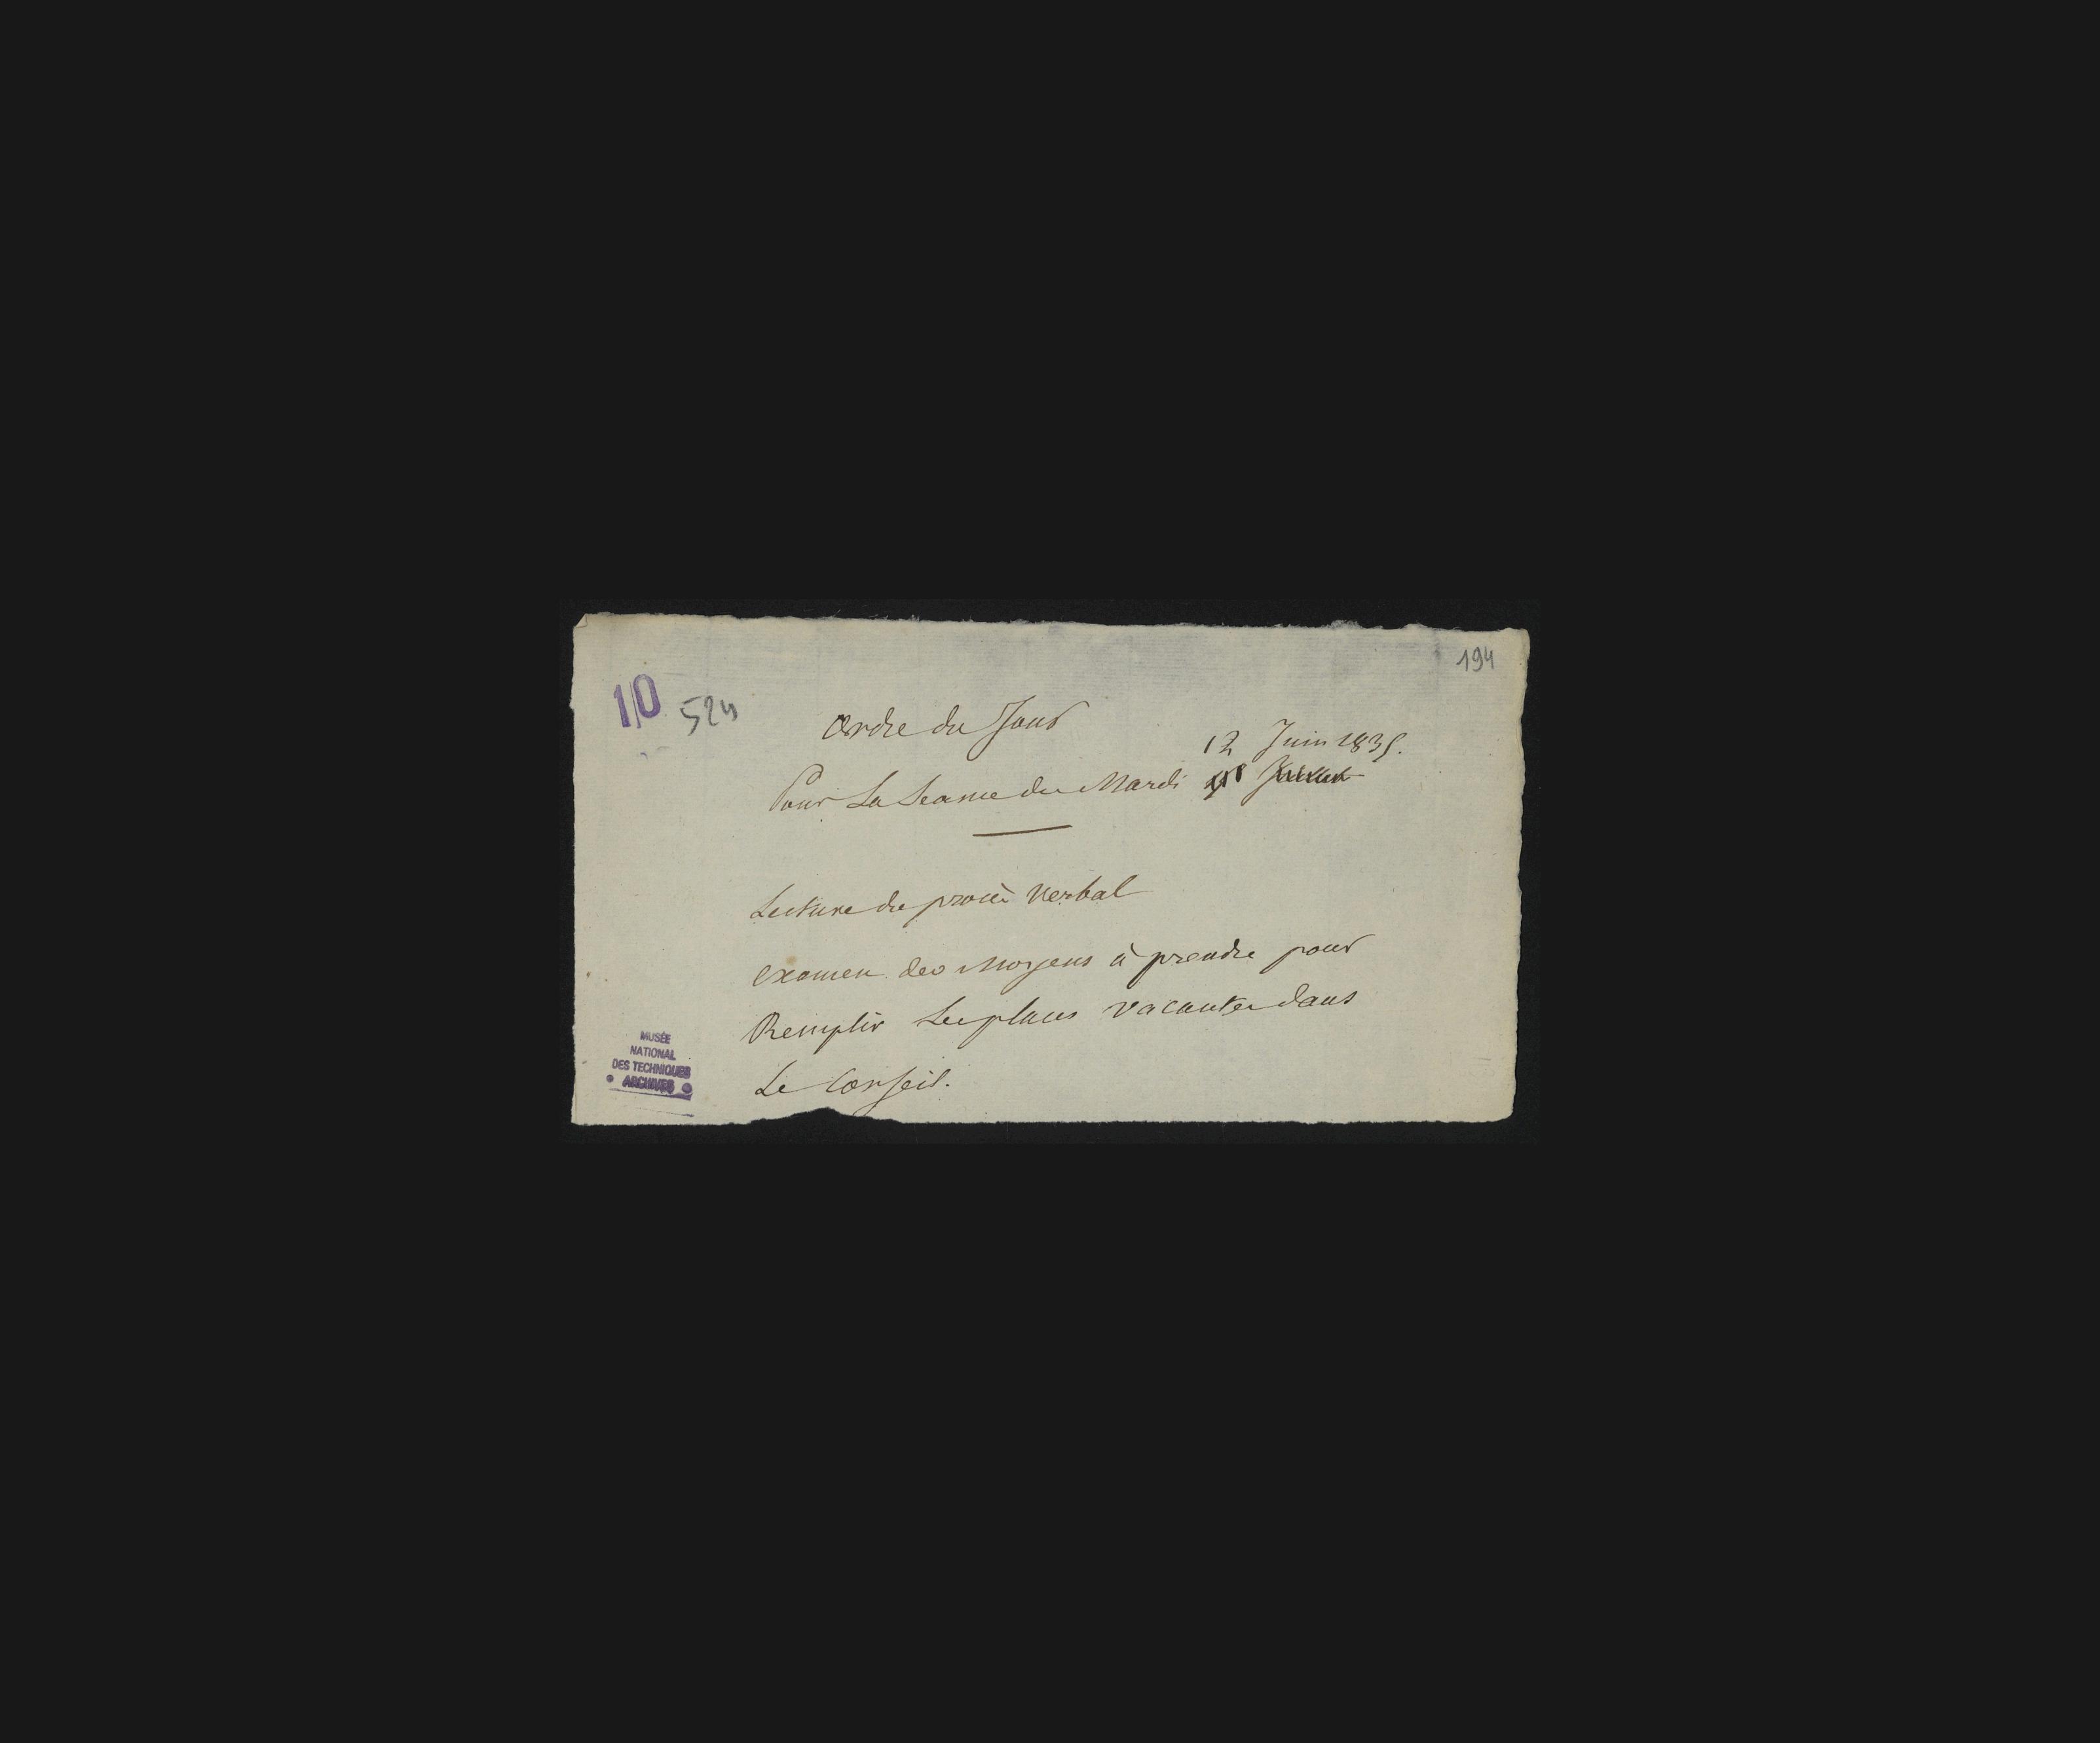 194
10 524
ordre du Jour
12 Juin 1835.
Pour La Seance du Mardi Juillet
Lecture du procès verbal
examen des Moyens à prendre pour
Remplir Les places vacantes dans
Le Conseil.
MUSÉE
NATIONAL
DES TECHNIQUES
ARCHIVES